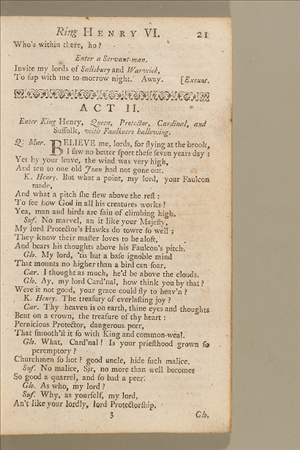 King HENRY VI. 21
Who's within there, ho?
Enter a Servant-man.
Invite my lords of Salisbury and Warwick,
To sup with me to-morrow night. Away. [Exeunt.
ACT II.
Enter King Henry, Queen, Protector, Cardinal, and
Suffolk, with Faulkners hallowing.
Q. Mar. BELIEVE me, lords, for flying at the brook,
I saw no better sport these seven years day;
Yet by your leave, the wind was very high,
And ten to one old Joan had not gone out.
K. Henry. But what a point, my lord, your Faulcon
made,
And what a pitch she flew above the rest:
To see how God in all his creatures works!
Yea, man and birds are fain of climbing high.
Suf. No marvel, an it like your Majesty,
My lord Protector's Hawks do towre so well;
They know their master loves to be aloft,
And bears his thoughts above his Faulcon's pitch.
Glo. My lord, 'tis but a base ignoble mind
That mounts no higher than a bird can soar.
Car. I thought as much, he'd be above the clouds.
Glo. Ay, my lord Card'nal, how think you by that?
Were it not good, your grace could fly to heav'n?
K. Henry. The treasury of everlasting joy?
Car. Thy heaven is on earth, thine eyes and thoughts
Bent on a crown, the treasure of thy heart:
Pernicious Protector, dangerous peer,
That smooth'd it so with King and common-weal.
Glo. What, Card'nal! Is your priesthood grown so
peremptory?
Churchmen so hot? good uncle, hide such malice.
Suf. No malice, Sir, no more than well becomes
So good a quarrel, and so bad a peer.
Glo. As who, my lord?
Suf. Why, as yourself, my lord,
An't like your lordly, lord Protectorship.
3 Glo.